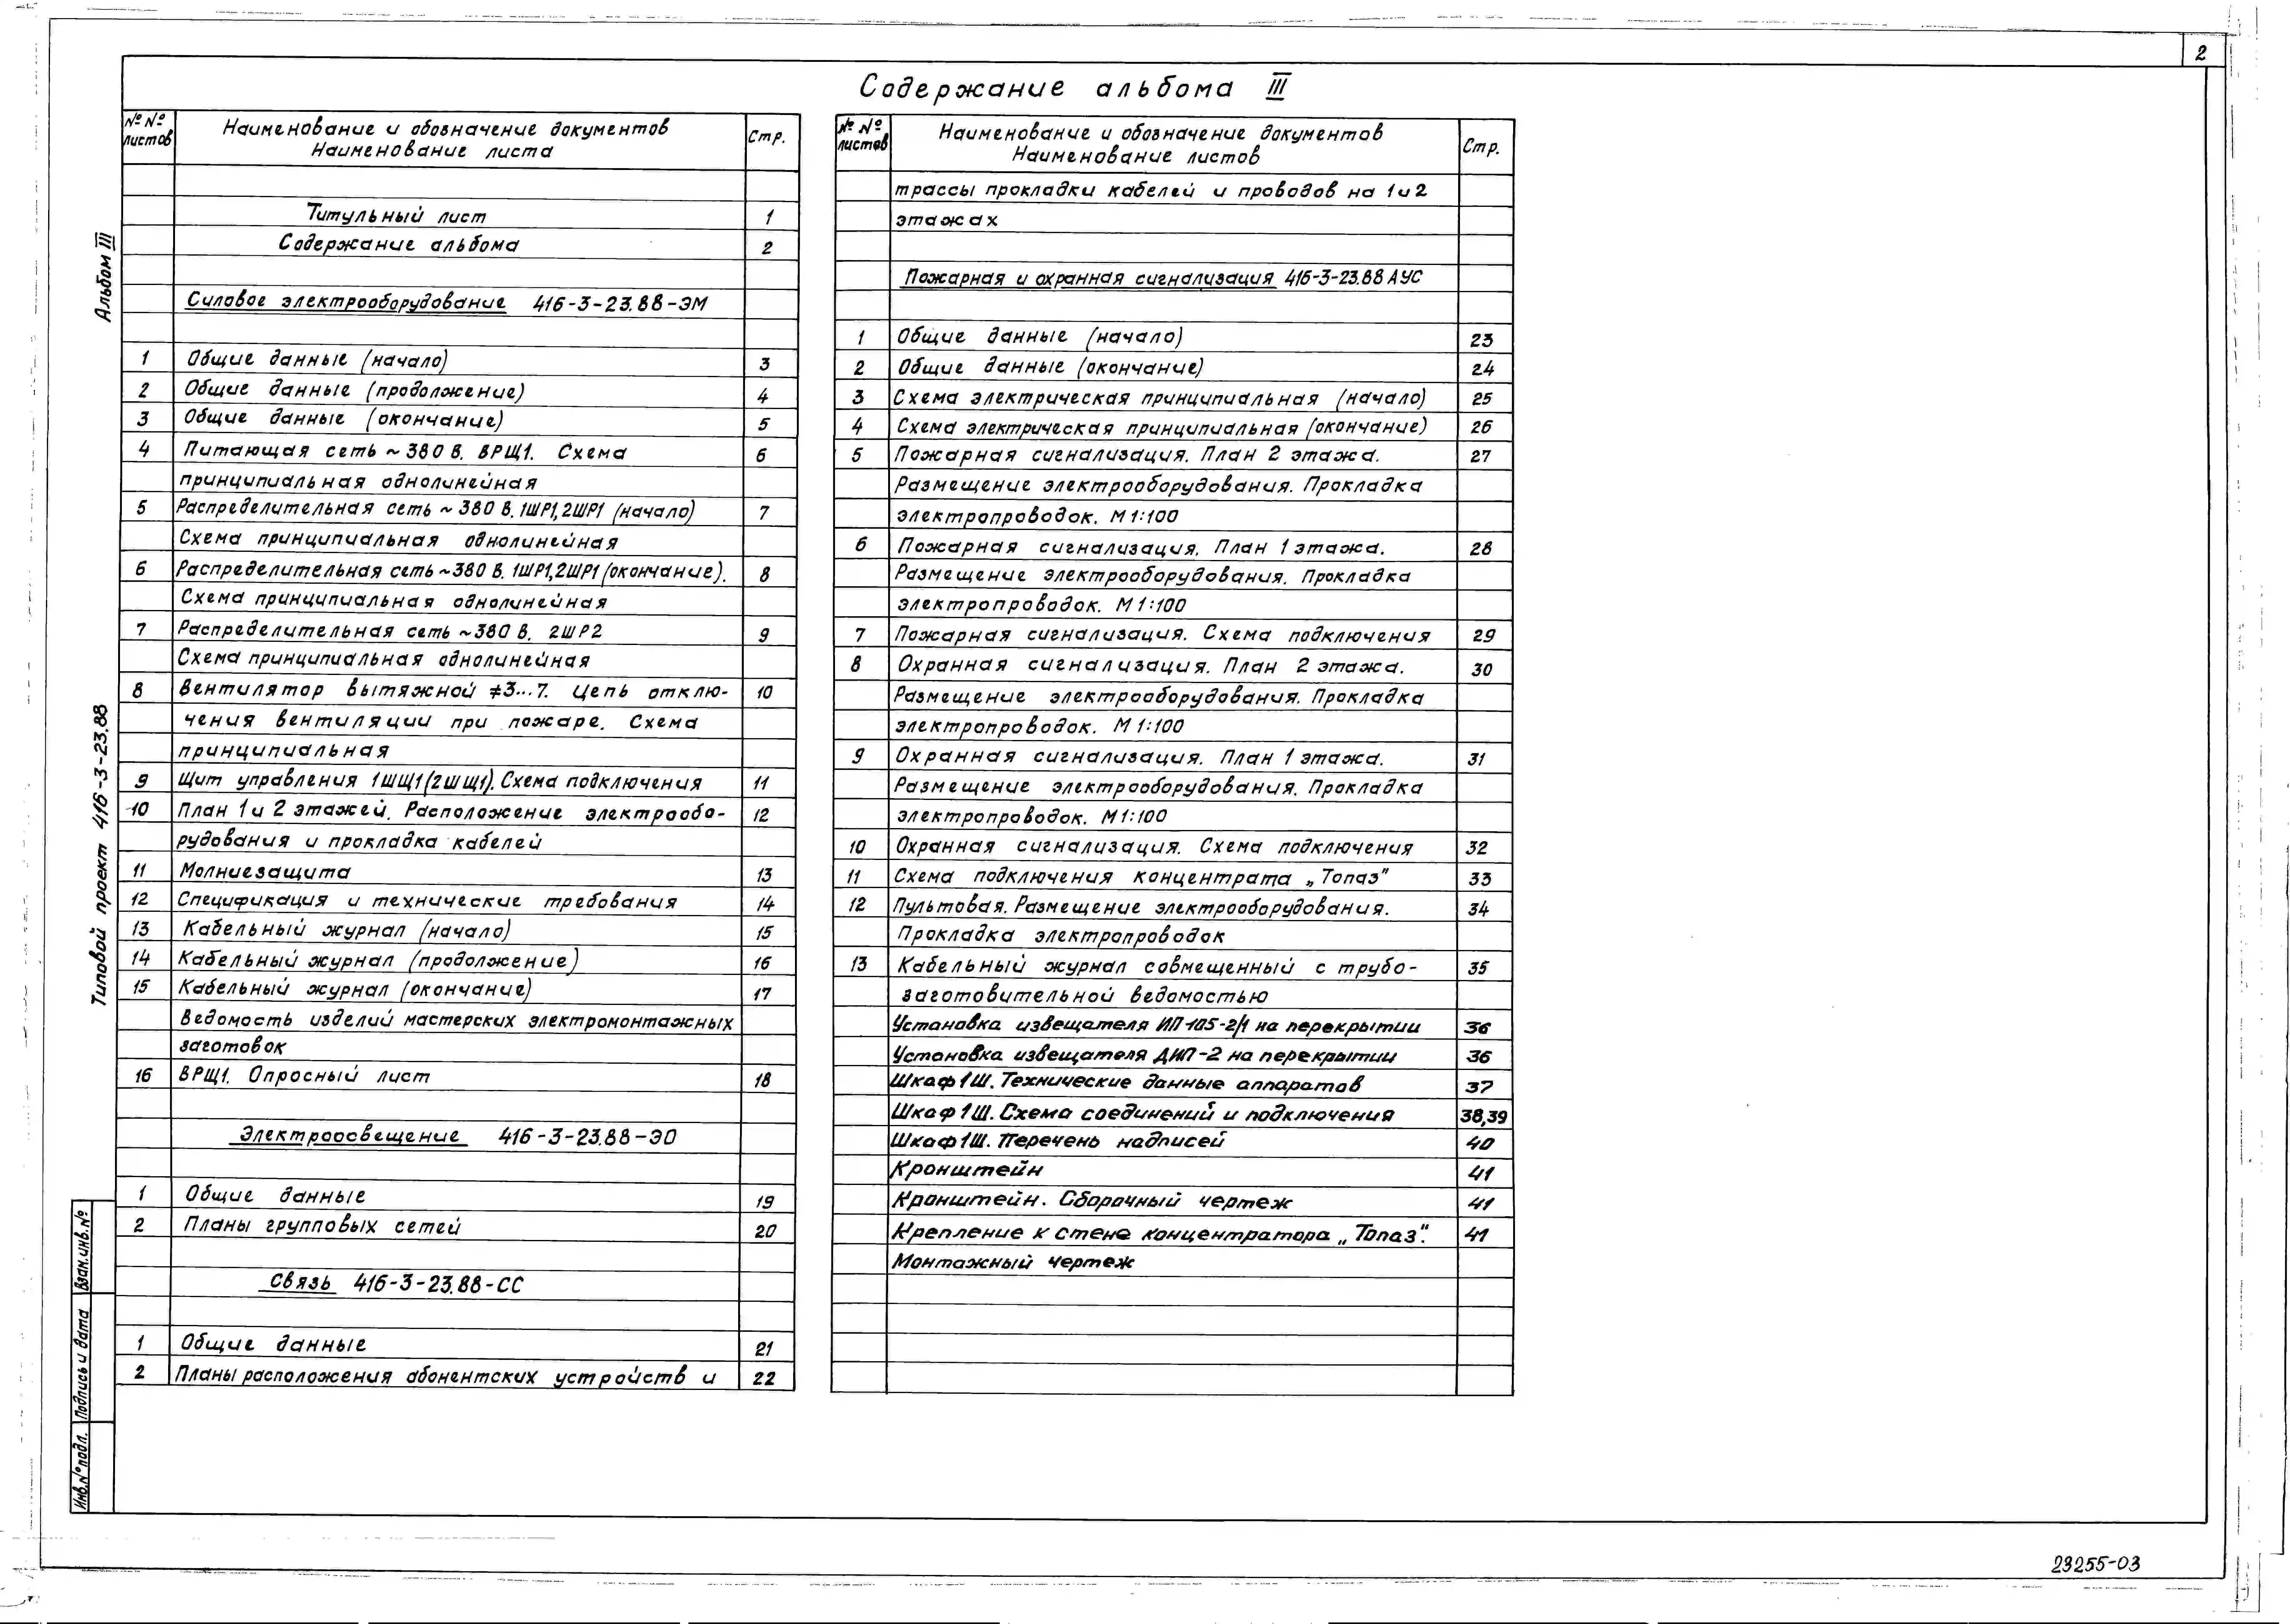 2
Содержание альбома III
№№ листов
Наименование и обозначение документов
Наименование листа
Стр.
Титульный лист 1
Содержание альбома 2
Силовое электрооборудование 416-3-23.88-ЭМ
1 Общие данные (начало) 3
2 Общие данные (продолжение) 4
3 Общие данные (окончание) 5
4 Питающая сеть ~380 В. ВРЩ1. Схема 6
принципиальная однолинейная
5 Распределительная сеть ~380 В. 1ШР1,2ШР1 (начало) 7
Схема принципиальная однолинейная
6 Распределительная сеть ~380 В. 1ШР1,2ШР1 (окончание). 8
Схема принципиальная однолинейная
7 Распределительная сеть ~380 В. 2ШР2 9
Схема принципиальная однолинейная
8 Вентилятор вытяжной ≠3...7. Цепь отклю- 10
чения вентиляции при пожаре. Схема
принципиальная
9 Щит управления 1ШЩ1(2ШЩ1). Схема подключения 11
10 План 1 и 2 этажей. Расположение электрообо- 12
рудования и прокладка кабелей
11 Молниезащита 13
12 Спецификация и технические требования 14
13 Кабельный журнал (начало) 15
14 Кабельный журнал (продолжение) 16
15 Кабельный журнал (окончание) 17
Ведомость изделий мастерских электромонтажных
заготовок
16 ВРЩ1. Опросный лист 18
Электроосвещение 416-3-23.88-ЭО
1 Общие данные 19
2 Планы групповых сетей 20
Связь 416-3-23.88-СС
1 Общие данные 21
2 Планы расположения абонентских устройств и 22
№№ листов
Наименование и обозначение документов
Наименование листов
Стр.
трассы прокладки кабелей и проводов на 1 и 2
этажах
Пожарная и охранная сигнализация 416-3-23.88 АУС
1 Общие данные (начало) 23
2 Общие данные (окончание) 24
3 Схема электрическая принципиальная (начало) 25
4 Схема электрическая принципиальная (окончание) 26
5 Пожарная сигнализация. План 2 этажа. 27
Размещение электрооборудования. Прокладка
электропроводок. М 1:100
6 Пожарная сигнализация. План 1 этажа. 28
Размещение электрооборудования. Прокладка
электропроводок. М 1:100
7 Пожарная сигнализация. Схема подключения 29
8 Охранная сигнализация. План 2 этажа. 30
Размещение электрооборудования. Прокладка
электропроводок. М 1:100
9 Охранная сигнализация. План 1 этажа. 31
Размещение электрооборудования. Прокладка
электропроводок. М 1:100
10 Охранная сигнализация. Схема подключения 32
11 Схема подключения концентрата „Топаз" 33
12 Пультовая. Размещение электрооборудования. 34
Прокладка электропроводок
13 Кабельный журнал совмещенный с трубо- 35
заготовительной ведомостью
Установка извещателя ИП-105-2/1 на перекрытии 36
Установка извещателя ДИП-2 на перекрытии 36
Шкаф 1Ш. Технические данные аппаратов 37
Шкаф 1Ш. Схема соединений и подключения 38,39
Шкаф 1Ш. Перечень надписей 40
Кронштейн 41
Кронштейн. Сборочный чертеж 41
Крепление к стене концентратора „Топаз". 41
Монтажный чертеж
Альбом III
Типовой проект 416-3-23.88
Взам.инв.№
Подпись и дата
Инв.№ подл.
23255-03